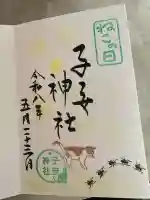 ねこの日
子安神社
令和八年
五月二十三日
子安神社